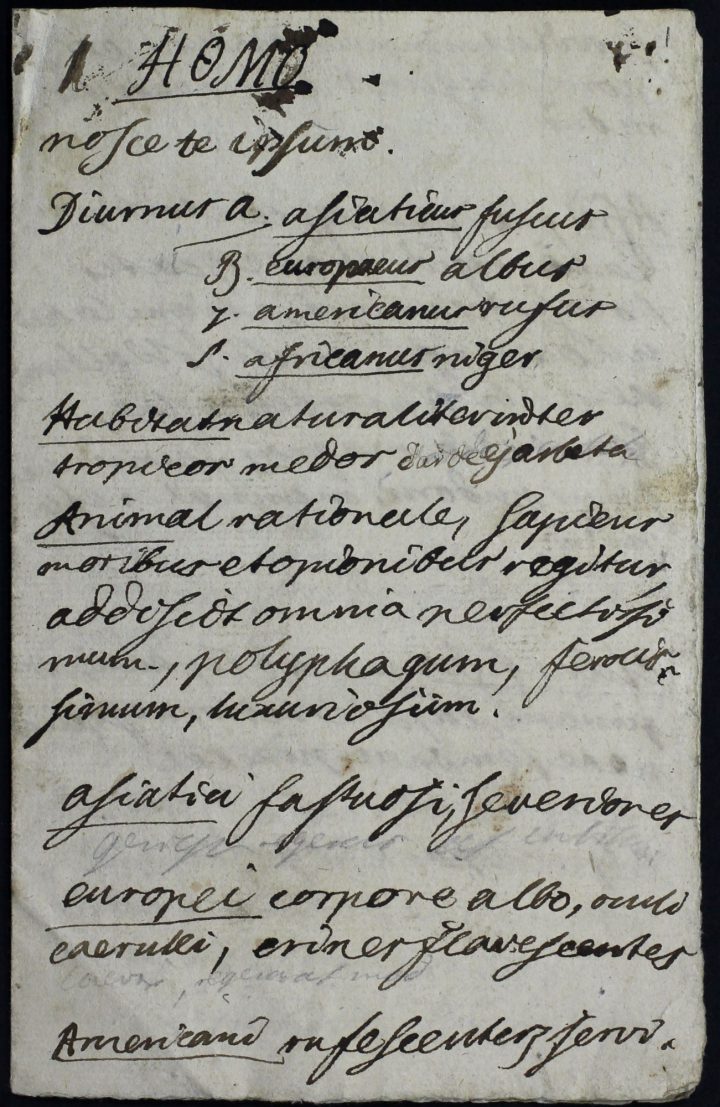 1
HOMO
nosce te ipsum.
Diurnus α. asiaticus fuscus
β. europaeus albus
γ. americanus rufus
δ. africanus niger
Habitat naturaliter inter
tropicos medos
Animal rationale, sapiens
moribus et opionibus regitur
addiscit omnia perfectissi
mum, polyphagum, ferocis
simum, luxuriosum.
asiatici fastuosi, severiores
europei corpore albo, oculi
caerulei, crines flavescentes
Americani rufescentes, servi.